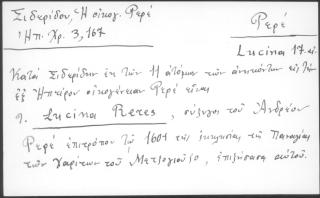 Σιδερίδου, Ἡ οἰκογ. Ρερέ
Ἠπ. Χρ. 3, 167
Ρερέ
Lucina 17 αἰ.
Κατὰ Σιδερίδην ἐκ τῶν 11 ἀτόμων τῶν ἀνηκόντων εἰς τὴν
ἐξ Ἠπείρου οἰκογένειαν Ρερέ εἶναι
9. Lucina Reres, σύζυγος τοῦ Ἀνδρέου
Ρερέ ἐπιτρόπου τῷ 1601 τῆς ἐκκλησίας τῆς Παναγίας
τῶν Χαρίτων τοῦ Μετζογιούσο, ἐπιζήσασα αὐτοῦ.